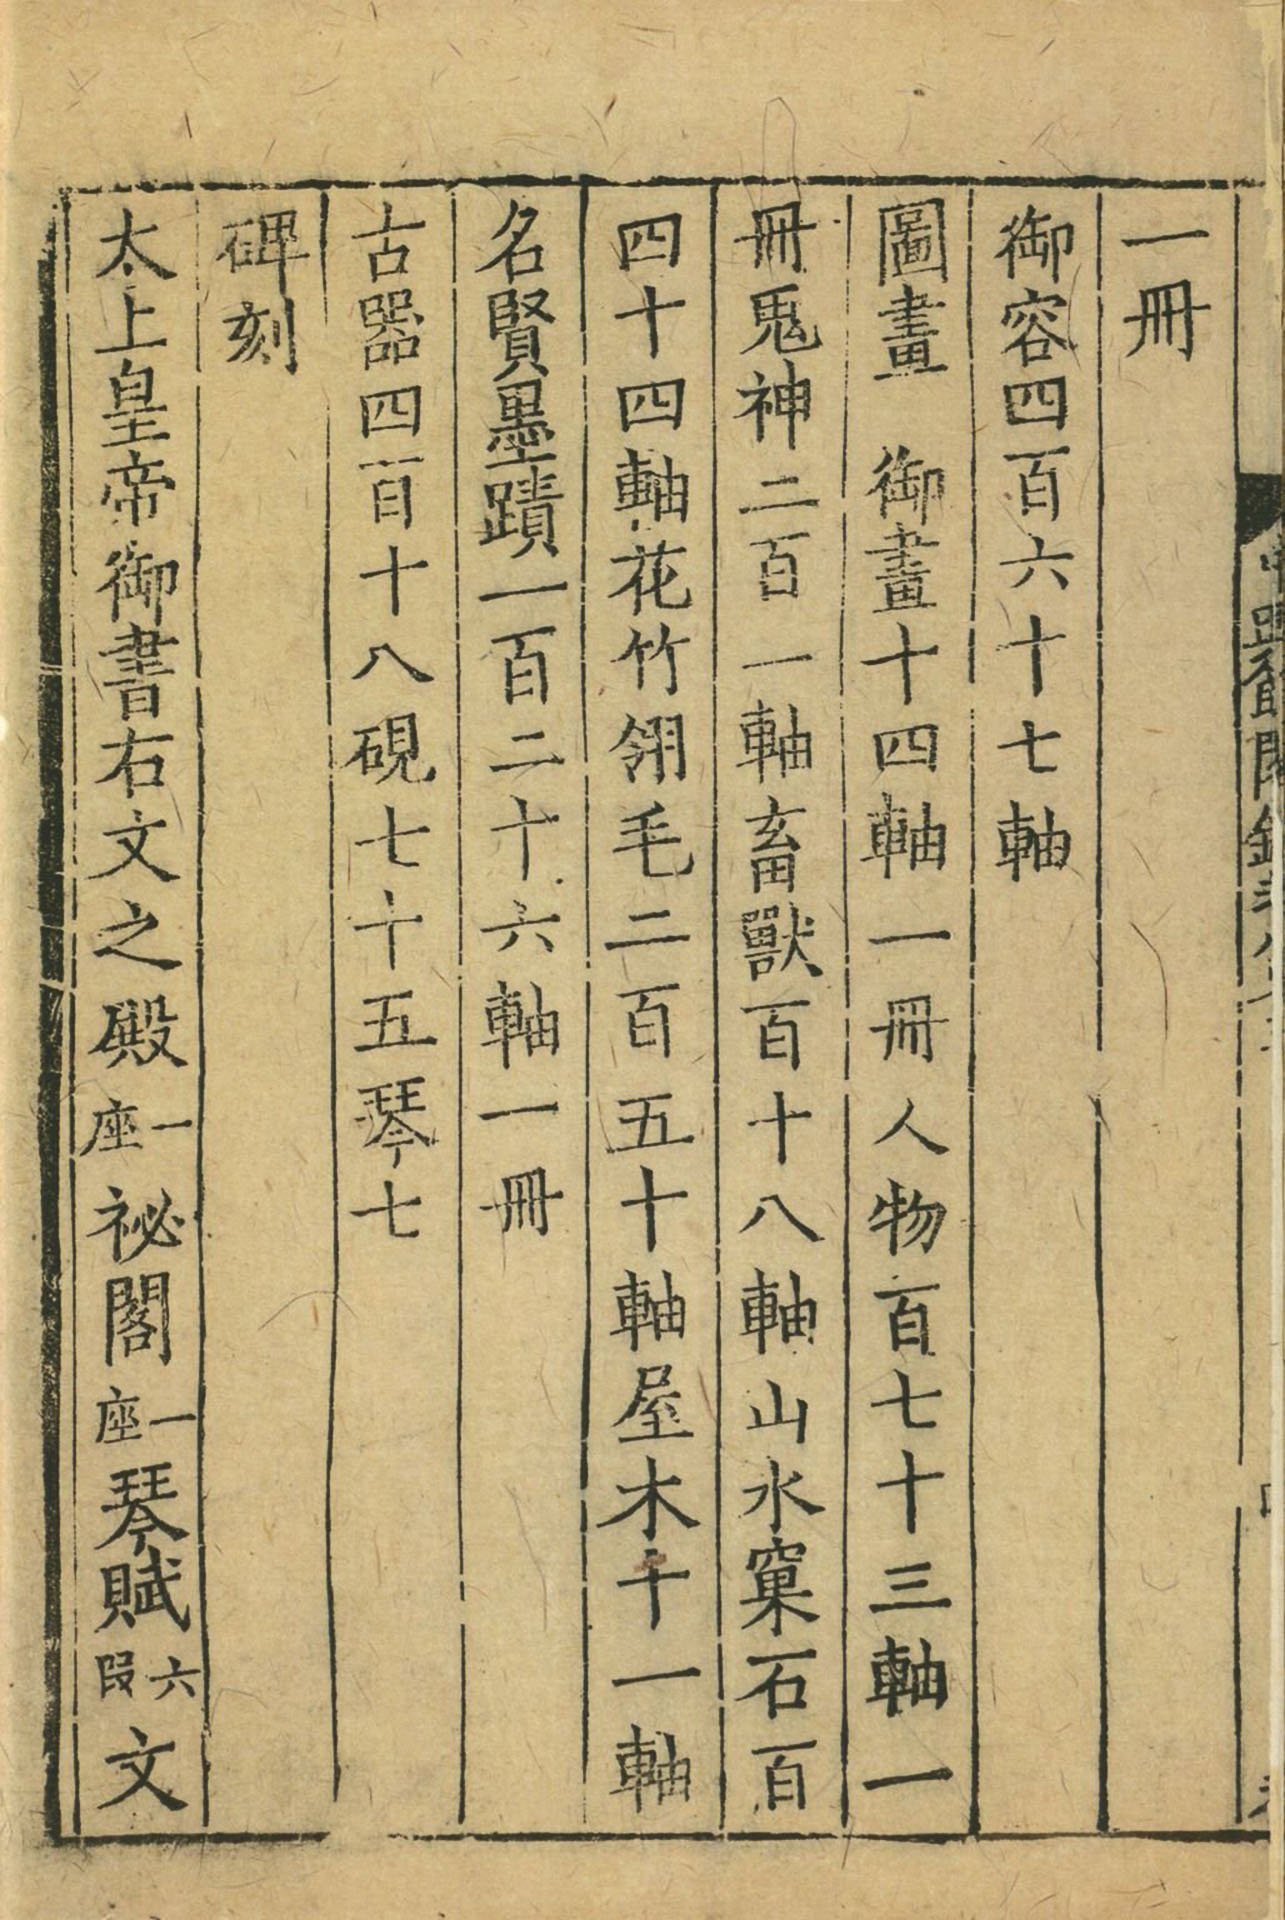 一冊
御容四百六十七軸
圖畫　御畫十四軸一冊人物百七十三軸一
冊鬼神二百一軸畜獸百十八軸山水窠石百
四十四軸花竹翎毛二百五十軸屋木十一軸
名賢墨蹟一百二十六軸一冊
古器四百十八硯七十五琴七
碑刻
太上皇帝御書右文之殿一座祕閣一座琴賦六段文